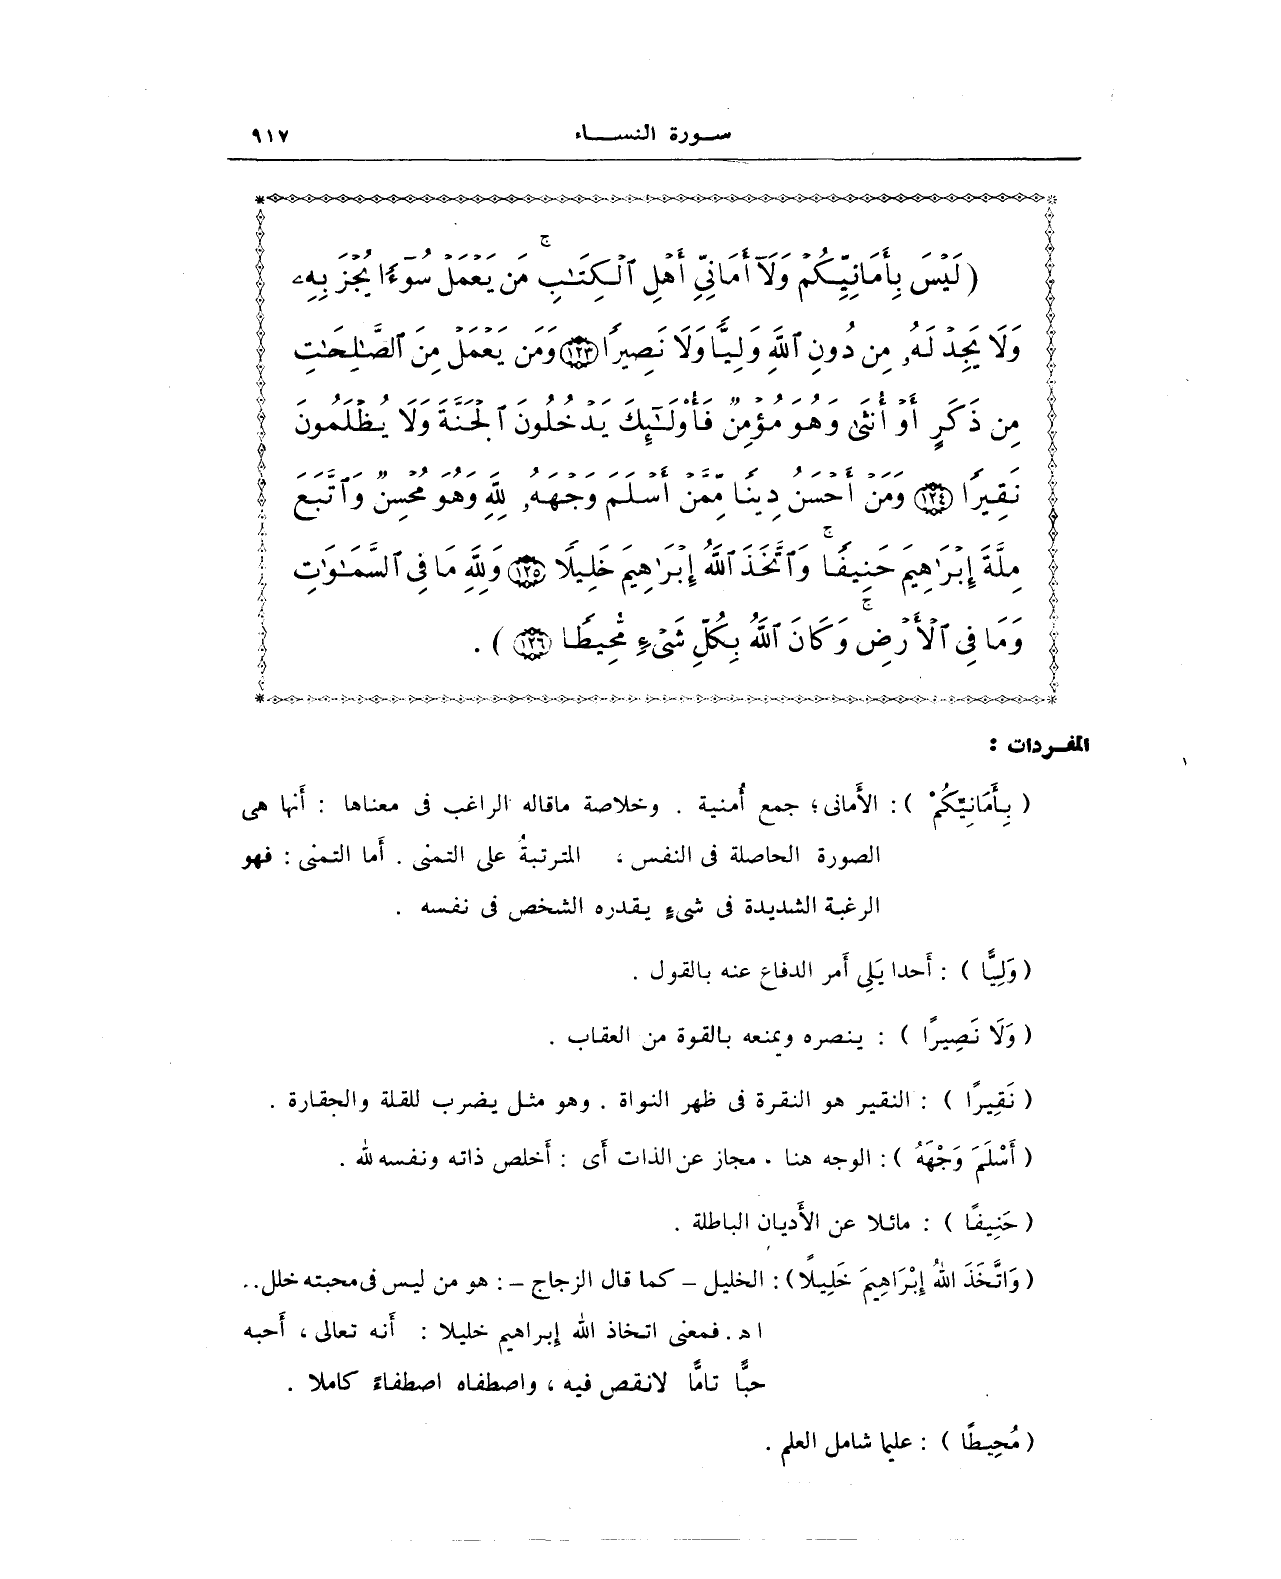 سورة النساء ٩١٧
( لَيْسَ بِأَمَانِيِّكُمْ وَلَآ أَمَانِيِّ أَهْلِ ٱلْكِتَٰبِ ۚ مَن يَعْمَلْ سُوٓءًا يُجْزَ بِهِۦ
وَلَا يَجِدْ لَهُۥ مِن دُونِ ٱللَّهِ وَلِيًّا وَلَا نَصِيرًا ١٢٣ وَمَن يَعْمَلْ مِنَ ٱلصَّٰلِحَٰتِ
مِن ذَكَرٍ أَوْ أُنثَىٰ وَهُوَ مُؤْمِنٌ فَأُو۟لَٰٓئِكَ يَدْخُلُونَ ٱلْجَنَّةَ وَلَا يُظْلَمُونَ
نَقِيرًا ١٢٤ وَمَنْ أَحْسَنُ دِينًا مِّمَّنْ أَسْلَمَ وَجْهَهُۥ لِلَّهِ وَهُوَ مُحْسِنٌ وَٱتَّبَعَ
مِلَّةَ إِبْرَٰهِيمَ حَنِيفًا ۗ وَٱتَّخَذَ ٱللَّهُ إِبْرَٰهِيمَ خَلِيلًا ١٢٥ وَلِلَّهِ مَا فِى ٱلسَّمَٰوَٰتِ
وَمَا فِى ٱلْأَرْضِ ۚ وَكَانَ ٱللَّهُ بِكُلِّ شَىْءٍ مُّحِيطًا ١٢٦ ) .
المفردات :
( بِأَمَانِيِّكُمْ ) : الأَمانى؛ جمع أُمنية . وخلاصة ماقاله الراغب فى معناها : أَنها هى
الصورة الحاصلة فى النفس ، المترتبةُ على التمنى . أَما التمنى : فهو
الرغبة الشديدة فى شىءٍ يقدره الشخص فى نفسه .
( وَلِيًّا ) : أَحدا يَلِى أَمر الدفاع عنه بالقول .
( وَلَا نَصِيرًا ) : ينصره ويمنعه بالقوة من العقاب .
( نَقِيرًا ) : النقير هو النقرة فى ظهر النواة . وهو مثل يضرب للقلة والحقارة .
( أَسْلَمَ وَجْهَهُ ) : الوجه هنا . مجاز عن الذات أَى : أَخلص ذاته ونفسه لله .
( حَنِيفًا ) : مائلا عن الأَديان الباطلة .
( وَاتَّخَذَ اللهُ إِبْرَاهِيمَ خَلِيلًا ) : الخليل – كما قال الزجاج – : هو من ليس فى محبته خلل ..
ا هـ . فمعنى اتخاذ الله إبراهيم خليلا : أَنه تعالى ، أَحبه
حبًّا تامًّا لانقص فيه ، واصطفاه اصطفاءً كاملا .
( مُحِيطًا ) : عليما شامل العلم .